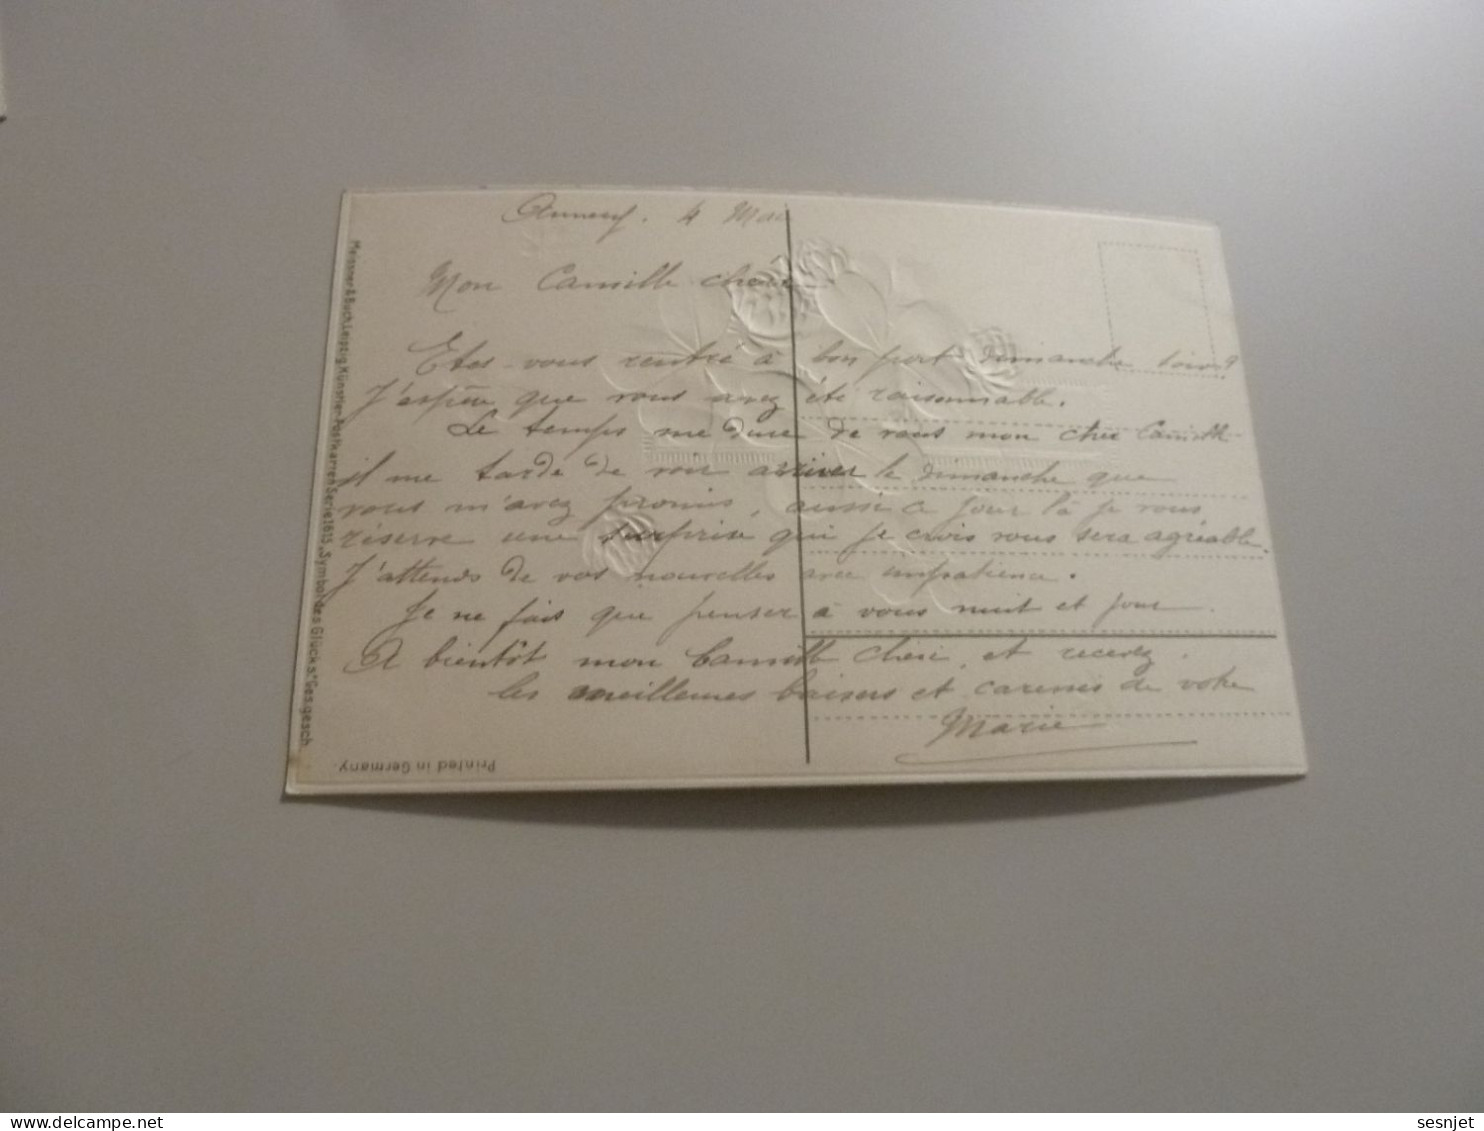 4 Mai
Mon Camille chéri
Etes-vous rentré à bon port dimanche soir ?
J'espère que vous avez été raisonnable.
Le temps me dure de vous mon cher Camille
il me tarde de voir arriver le dimanche que
vous m'avez promis, aussi ce jour là je vous
réserve une surprise qui je crois vous sera agréable.
J'attends de vos nouvelles avec impatience.
Je ne fais que penser à vous nuit et jour.
A bientôt mon Camille chéri, et recevez
les meilleures baisers et caresses de votre
Marie
Meissner & Buch, Leipzig, Künstler-Postkarten Serie 1615 „Symbol des Glücks" Ges. gesch.
Printed in Germany.
www.delcampe.net
sesnjet